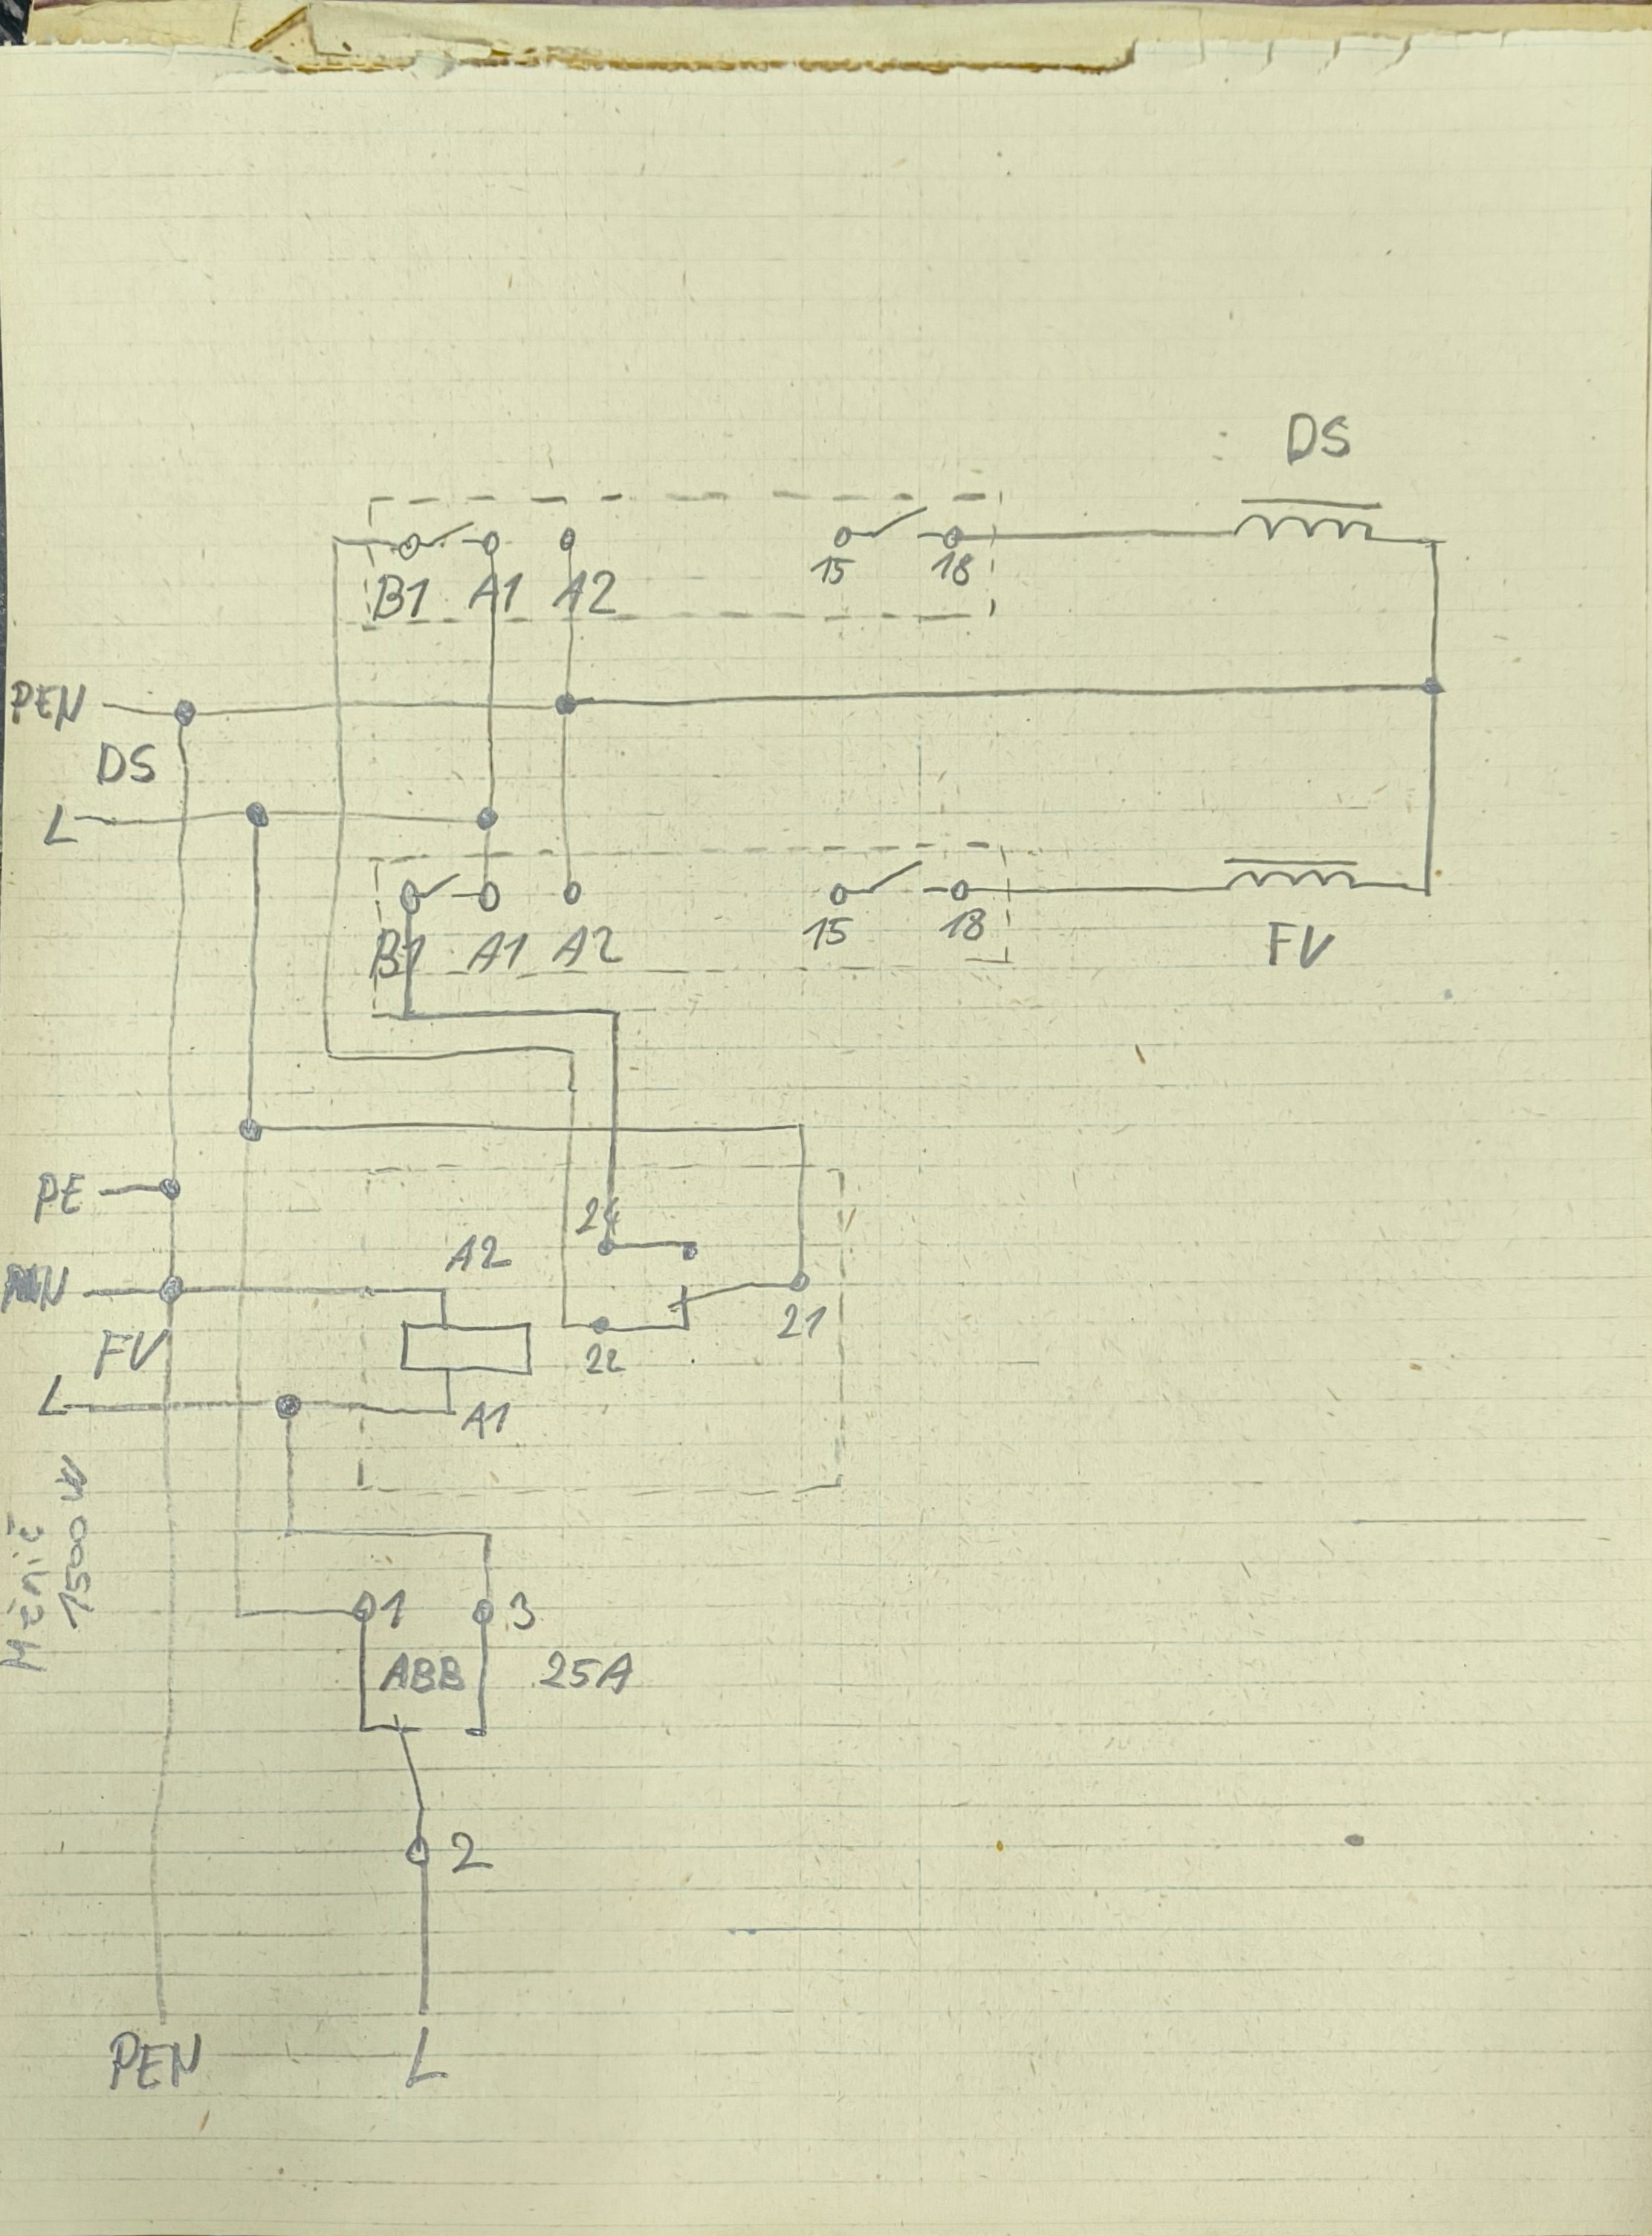 DS
B1 A1 A2
15 18
PEN
DS
L
B1 A1 A2
15 18
FV
PE
24
A2
N
21
22
FV
L
A1
Měnič
1500 W
1 3
ABB 25A
2
PEN L